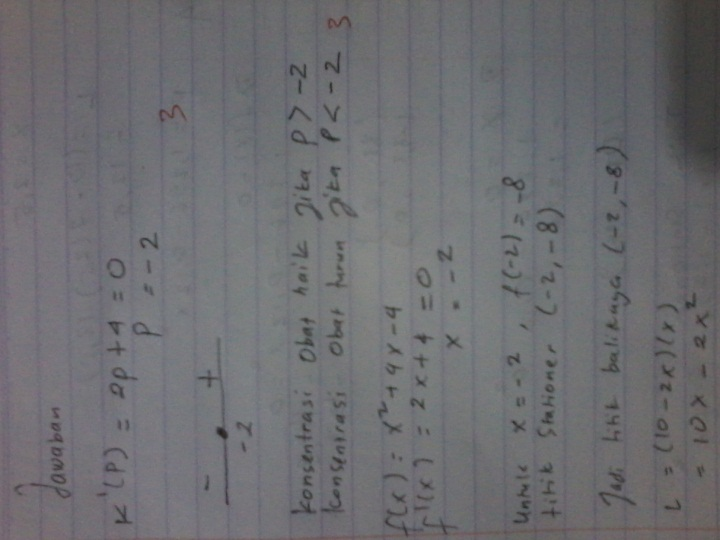 Jawaban
K'(P) = 2P + 4 = 0
P = -2
3
- +
-2
Konsentrasi Obat naik jika P > -2
Konsentrasi Obat turun jika P < -2 3
f(x) = x² + 4x - 4
f'(x) = 2x + 4 = 0
x = -2
Untuk x = -2, f(-2) = -8
titik stationer (-2, -8)
Jadi titik baliknya (-2, -8)
L = (10 - 2x)(x)
= 10x - 2x²